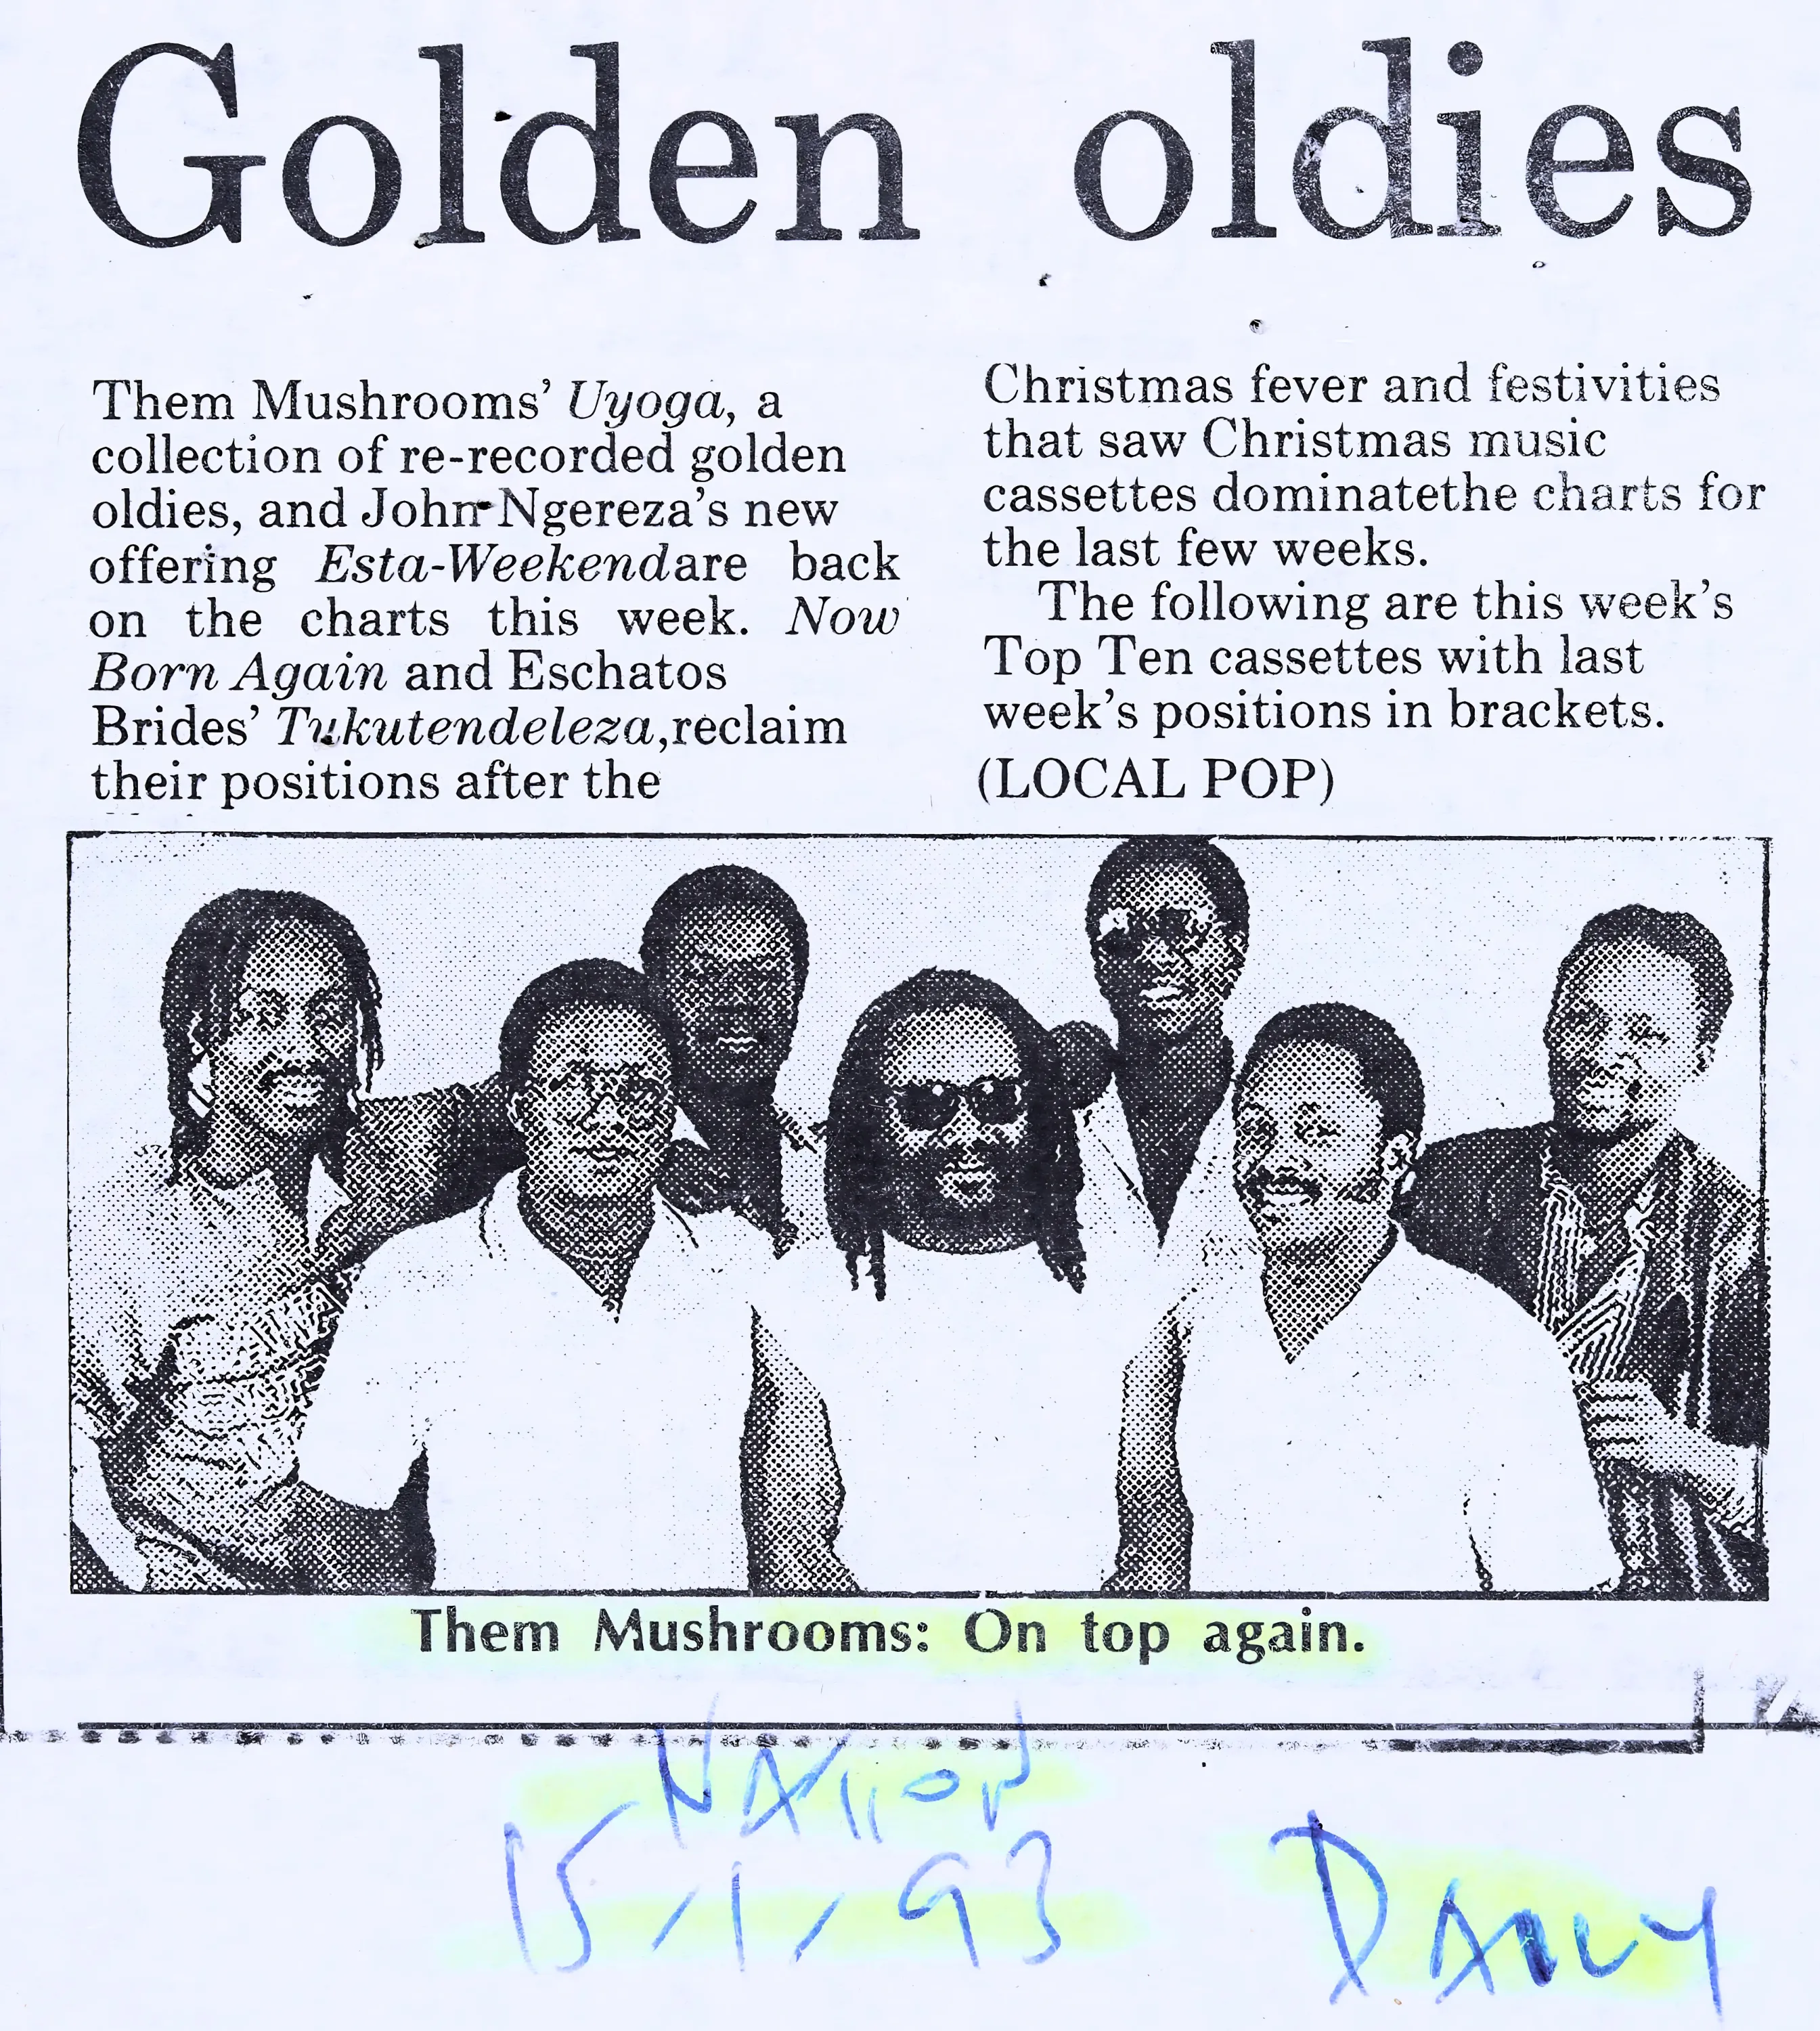 Golden oldies
Them Mushrooms' Uyoga, a
collection of re-recorded golden
oldies, and John Ngereza's new
offering Esta-Weekendare back
on the charts this week. Now
Born Again and Eschatos
Brides' Tukutendeleza,reclaim
their positions after the
Christmas fever and festivities
that saw Christmas music
cassettes dominatethe charts for
the last few weeks.
The following are this week's
Top Ten cassettes with last
week's positions in brackets.
(LOCAL POP)
Them Mushrooms: On top again.
NATION
15/1/93
DAILY